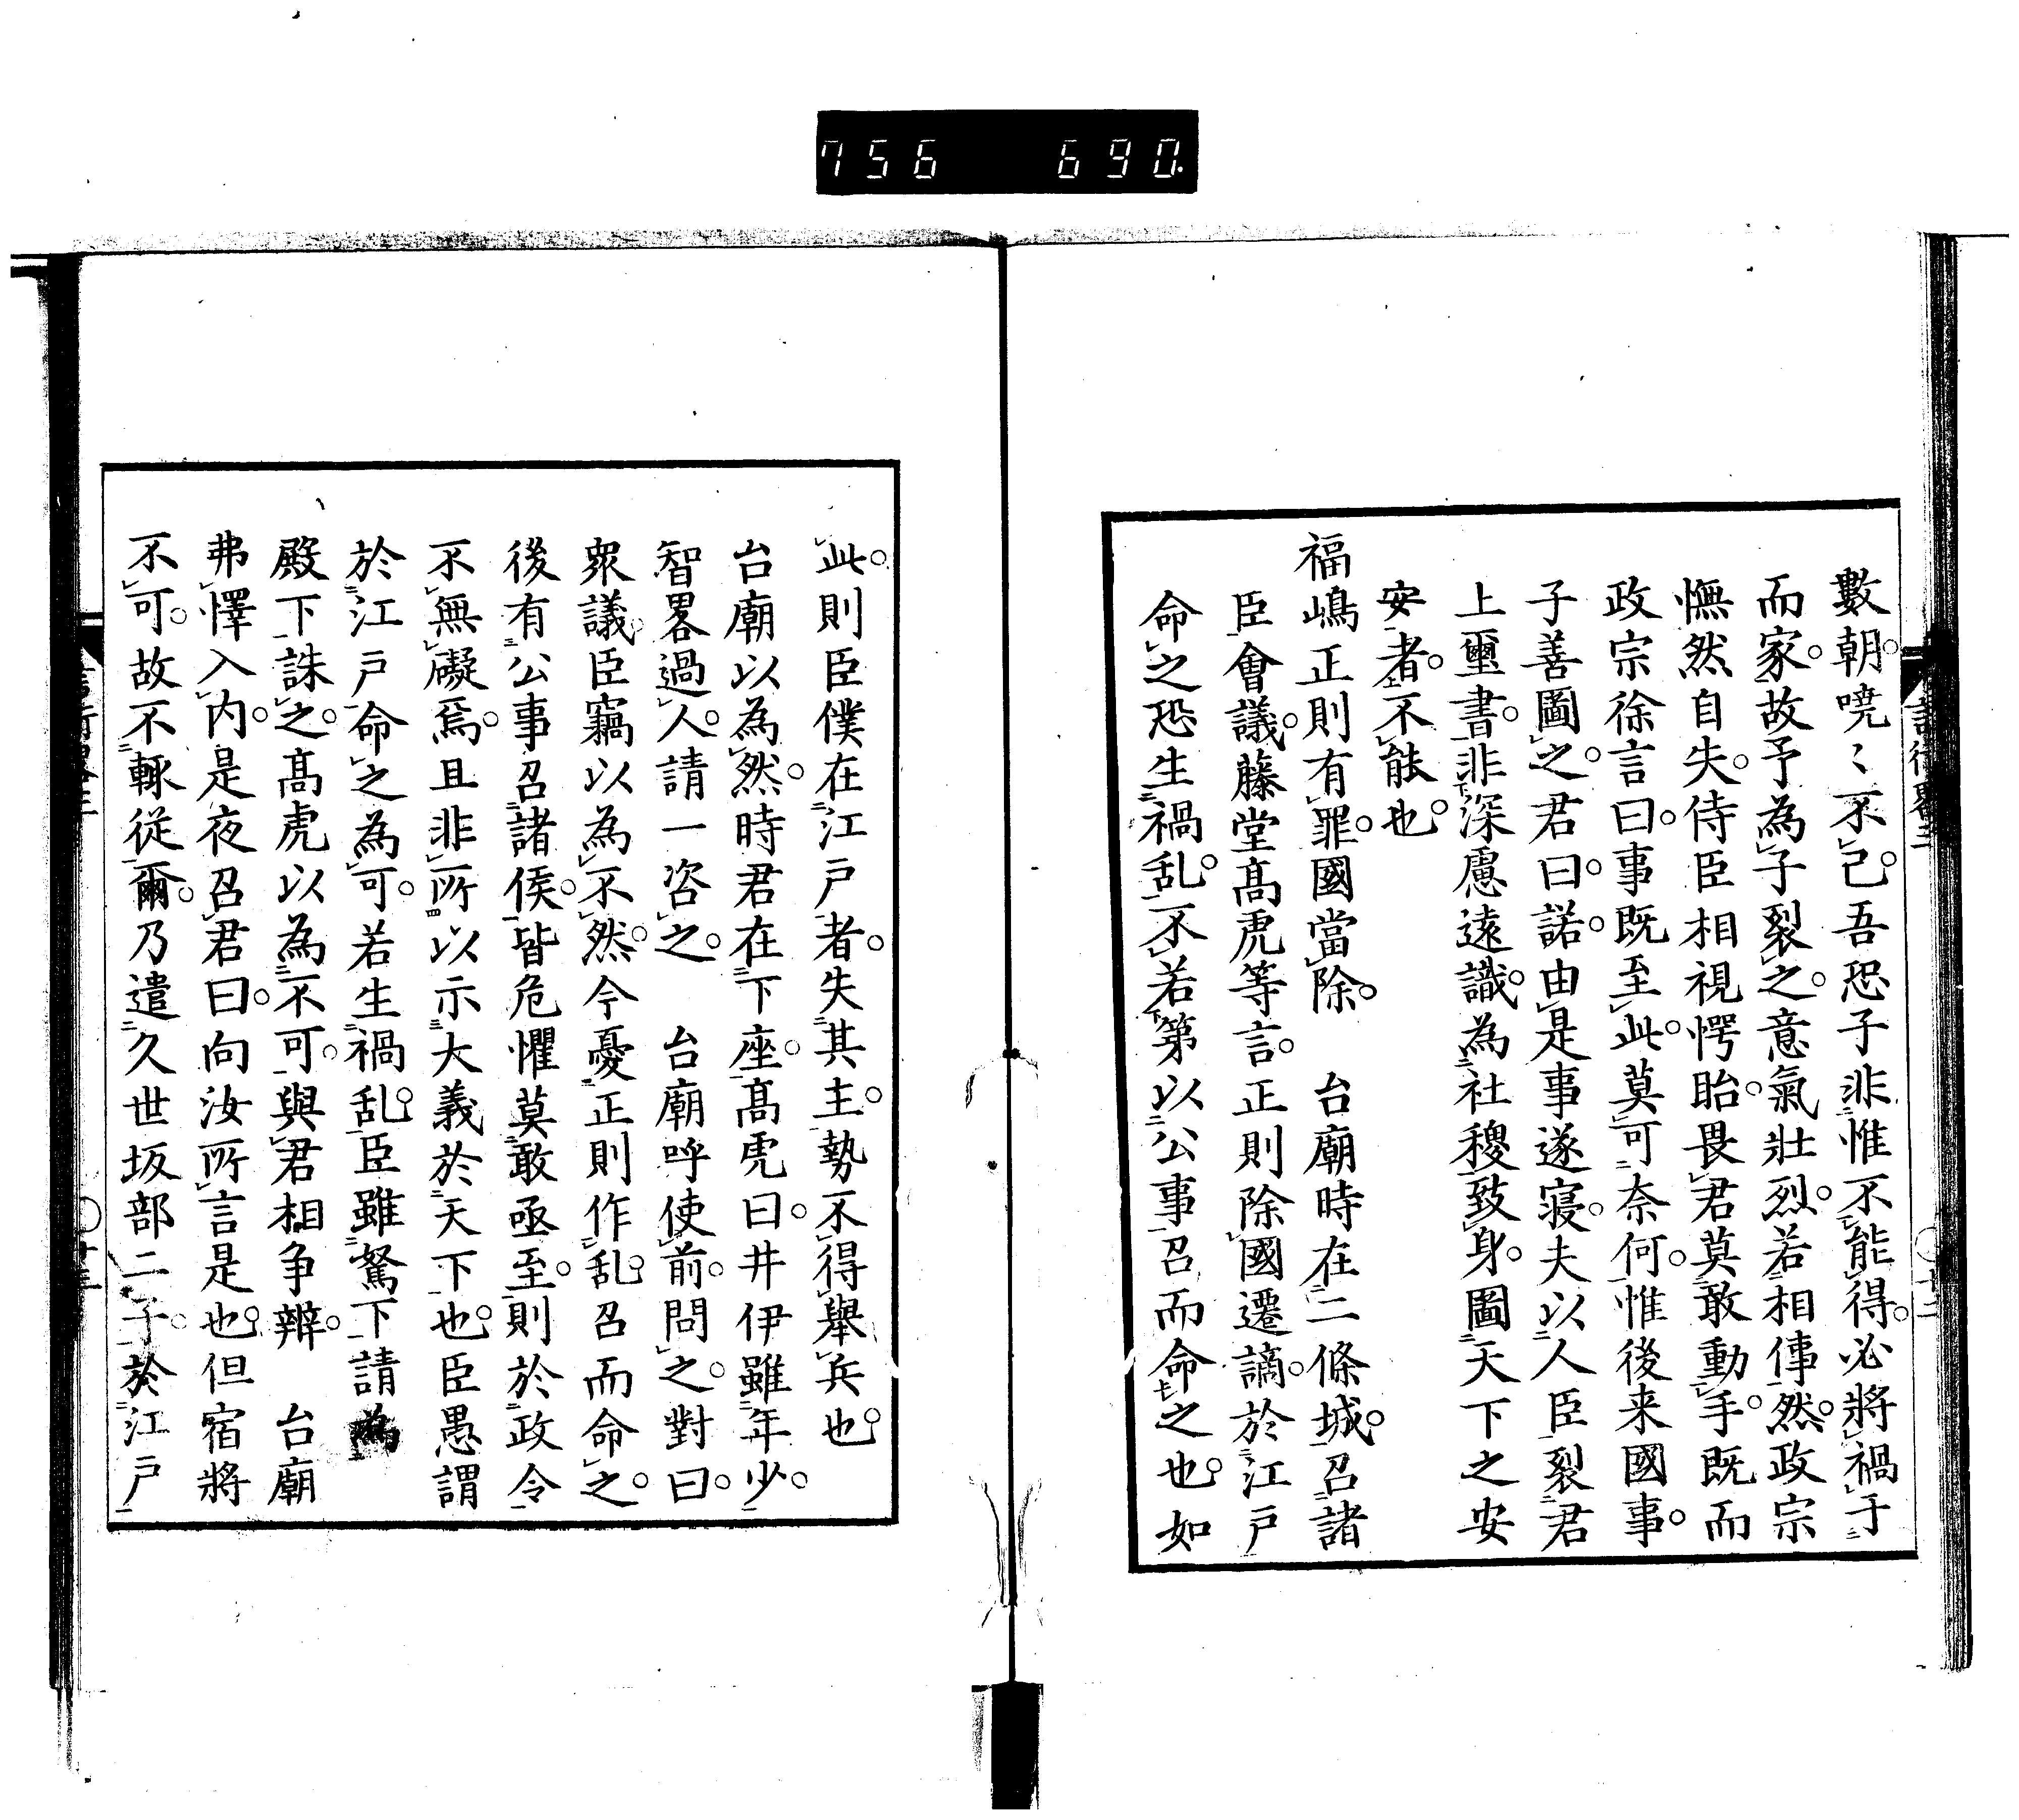 756 690.
數朝。嘵〻不已。吾恐子非惟不能得。必將禍于
而家。故予為子裂之。意氣壯烈。若相倳然。政宗
憮然自失。侍臣相視愕眙。畏君莫敢動手。既而
政宗徐言曰。事既至此。莫可奈何。惟後来國事。
子善圖之。君曰。諾。由是事遂寢。夫以人臣裂君
上璽書。非深慮遠識。為社稷致身。圖天下之安
安者。不能也。
福嶋正則有罪。國當除。台廟時在二條城。召諸
臣會議。藤堂髙虎等言。正則除國遷謫。於江戸
命之恐生禍乱。不若第以公事召而命之也。如
此。則臣僕在江戸者。失其主。勢不得舉兵也。
台廟以為然。時君在下座。髙虎曰。井伊雖年少。
智畧過人。請一咨之。台廟呼使前。問之。對曰。
衆議。臣竊以為不然。今憂正則作乱。召而命之。
後有公事召諸侯。皆危懼莫敢亟至。則於政令
不無礙焉。且非所以示大義於天下也。臣愚謂
於江戸命之為可。若生禍乱。臣雖駑下請為
殿下誅之。髙虎以為不可。與君相争辯。台廟
弗懌入内。是夜召君曰。向汝所言是也。但宿將
不可。故不輙從爾。乃遣久世坂部二子。於江戸